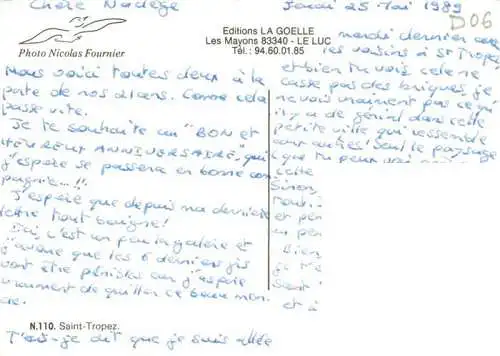 Chère Nadège
Jeudi 25 Mai 1989
D06
Photo Nicolas Fournier
Editions LA GOELLE
Les Mayons 83340 - LE LUC
Tél.: 94.60.01.85
Nous voici toutes deux à la
porte de nos 21 ans. Comme cela
passe vite.
Je te souhaite un "BON et
HEUREUX ANNIVERSAIRE" qui
j'espère se passera en bonne com
pagnie...!!
J'espère que depuis ma dernière
lettre tout baigne!
Ici, c'est un peu la galère et
j'avoue que les 6 derniers
vont être pénibles car j'espère
vraiment de quitter ce beau mon
de.
N.110. Saint-Tropez.
T'ai-je dit que je suis allée
mardi dernier avec
les voisins à St Tropez
et bien tu vois cela ne
casse pas des briques, je
ne vois vraiment pas ce qu'
il y a de génial dans cette
petite ville qui ressemble
aux autres! Seul le paysage
que tu peux voir
cette
Sinon,
et
un
Bien
je t
et à